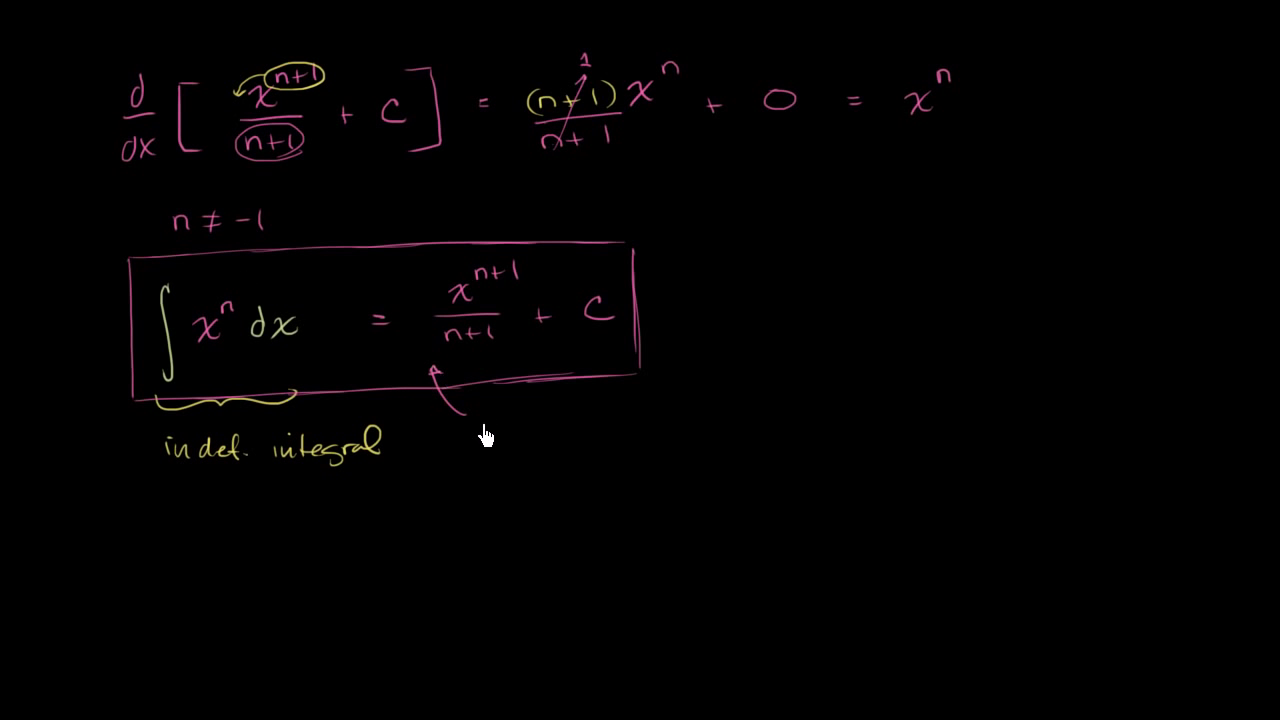 d/dx [ x^(n+1)/(n+1) + C ] = (n+1)x^n/(n+1) + 0 = x^n
1
n ≠ -1
∫ x^n dx = x^(n+1)/(n+1) + C
indef. integral